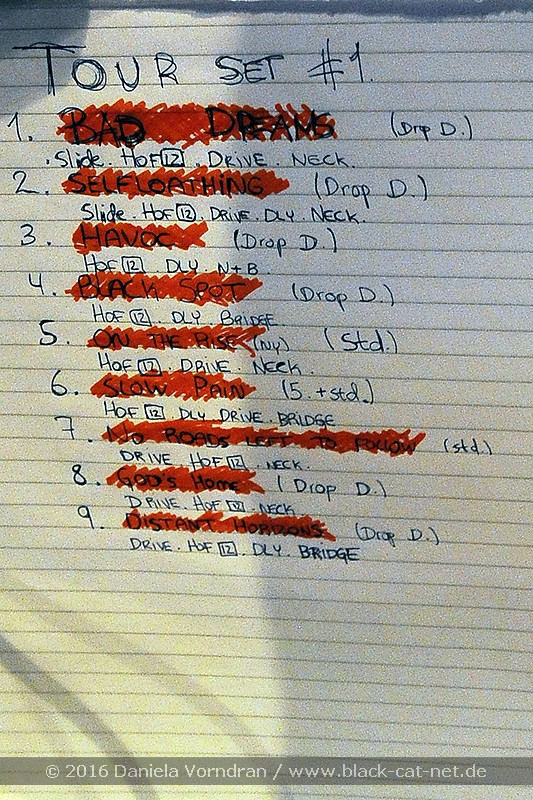 TOUR SET #1.
1. BAD DREAMS (Drop D.)
. Slide. HOF 12 . DRIVE . NECK.
2. SELFLOATHING (Drop D.)
Slide. HOF 12 . DRIVE. DLY. NECK.
3. HAVOC (Drop D.)
HOF 12 . DLY N+B.
4. BLACK SPOT (Drop D.)
HOF 12 . DLY BRIDGE.
5. ON THE RISE (NY) (Std.)
HOF 12 . DRIVE . NECK.
6. SLOW PAIN (5. + std.)
HOF 12 DLY DRIVE . BRIDGE
7. NO ROADS LEFT TO FOLLOW (std.)
DRIVE HOF 12 . NECK.
8. GOD'S HOME (Drop D.)
DRIVE. HOF 12 . NECK
9. DISTANT HORIZONS (Drop D.)
DRIVE. HOF 12 . DLY. BRIDGE
© 2016 Daniela Vorndran / www.black-cat-net.de